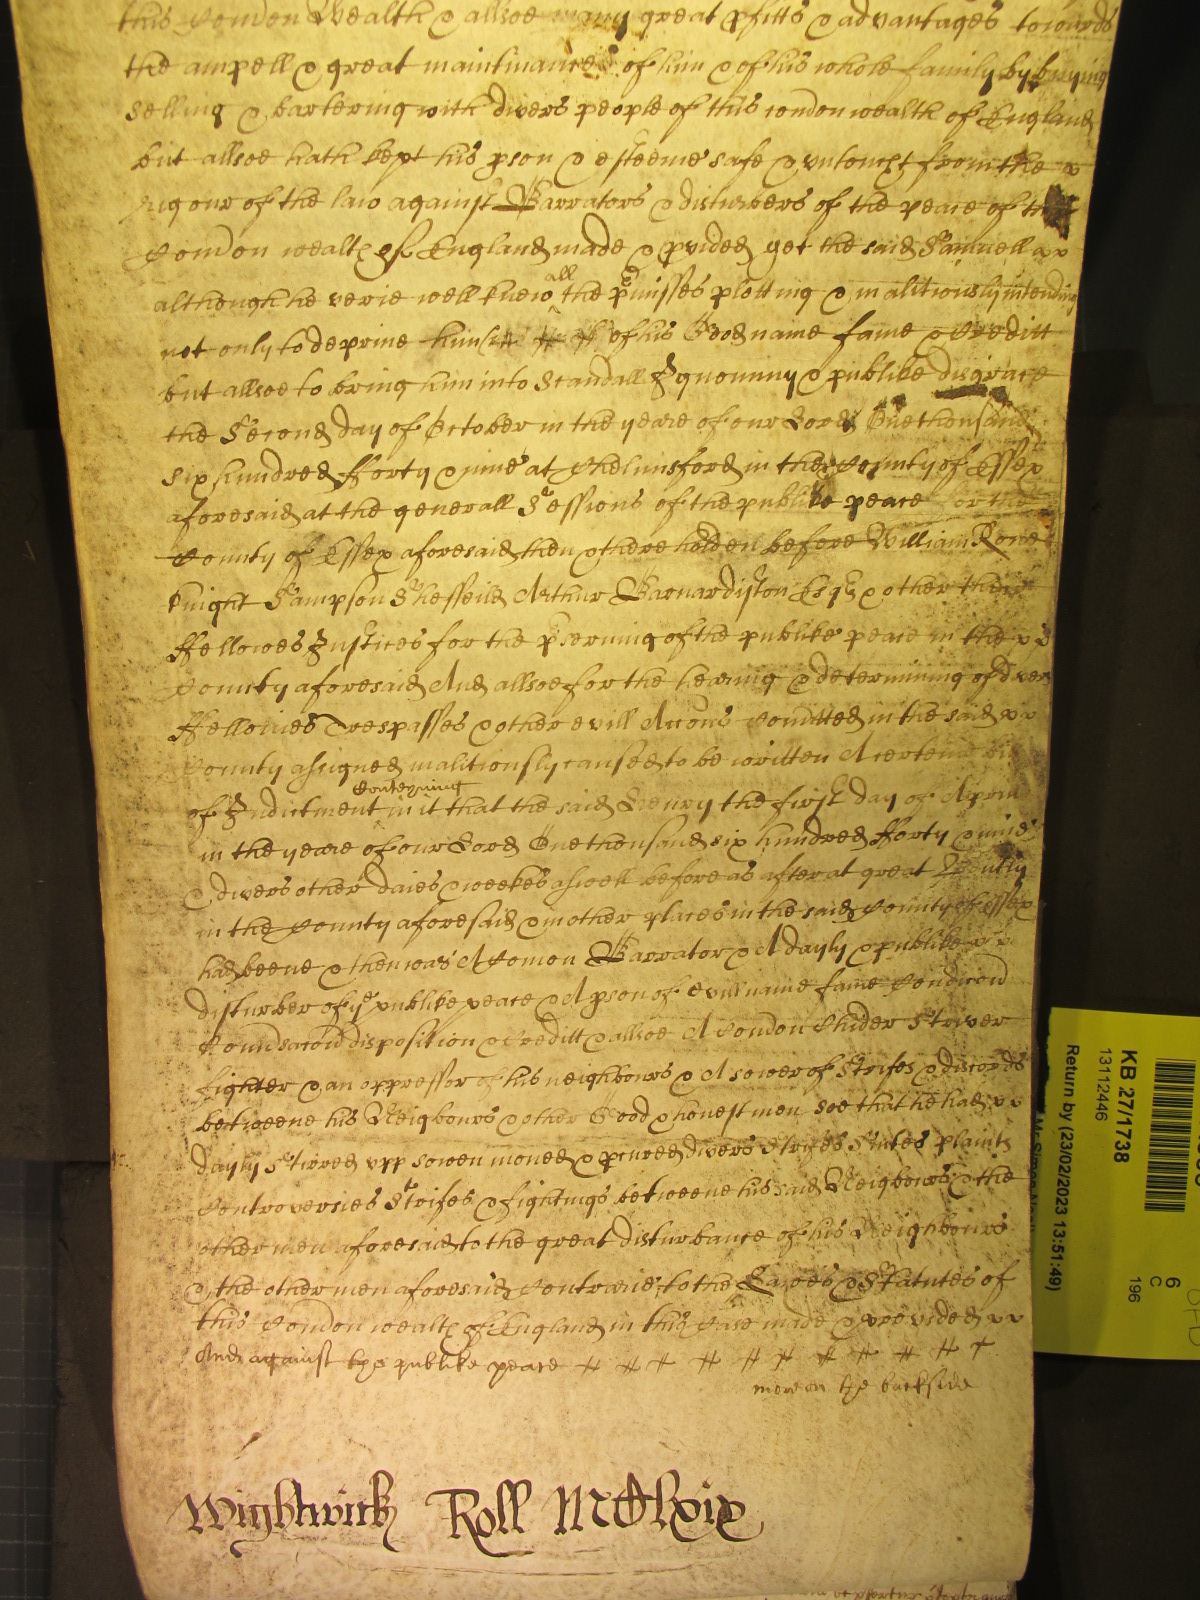 this Comon Wealth & allsoe many great pfitts & advantages towards
the ampell & great maintinance of him & of his whole family by buying
selling & bartering with divers people of this comon wealth of England
but allsoe hath kept his pson & esteeme safe & untoucht from the
rigour of the law against Barrators & disturbers of the peace of th
Comon wealth of England made & pvided yet the said Samuell
although he verie well knew all the pmisses plotting & malitiously intending
not only to deprive him of his Good name fame & Creditt
but allsoe to bring him into Scandall Ignominy & publike disgrace
the Second day of October in the yeare of our Lord One thousand
six hundred fforty & nine at Chelmsford in the County of Essex
aforesaid at the generall Sessions of the publike peace for the
County of Essex aforesaid then & there holden before William Rowe
knight Sampson Sheffeild Arthur Barnardiston Esqs & other their
ffellowes Justices for the pserving of the publike peace in the
County aforesaid And allsoe for the hearing & determining of divers
ffellonies Trespasses & other evill Accons comitted in the said
County assigned malitiously caused to be written A certeine
of Indictment conteyning in it that the said Henry the first day of Aprill
in the yeare of our Lord One thousand six hundred fforty & nine
& divers other daies & weekes aswell before as after at great
in the County aforesaid & in other places in the said County of Essex
had beene & then was A Comon Barrator & A dayly & publike
disturber of ye publike peace & A pson of evill name fame Condicon
disposition & Creditt & allsoe A Comon Chider Striver
fighter & an oppressor of his neighbours & A sower of Strifes & discords
betweene his Neigbours & other Good & honest men soe that he had
dayly Stirred upp sowen moved & pcured divers Strifes Suites plaints
Controversies Strifes & fightings betweene his said Neigbours & the
other men aforesaid to the great disturbance of his Neighbours
& the other men aforesaid Contrarie to the Lawes & Statutes of
this Comon wealth of England in this Case made & provided
And against the publike peace
more on the backside
Wightwick Roll MClxix
KB 27/1738
13112446
Return by (23/02/2023 13:51:49)
6
C
196